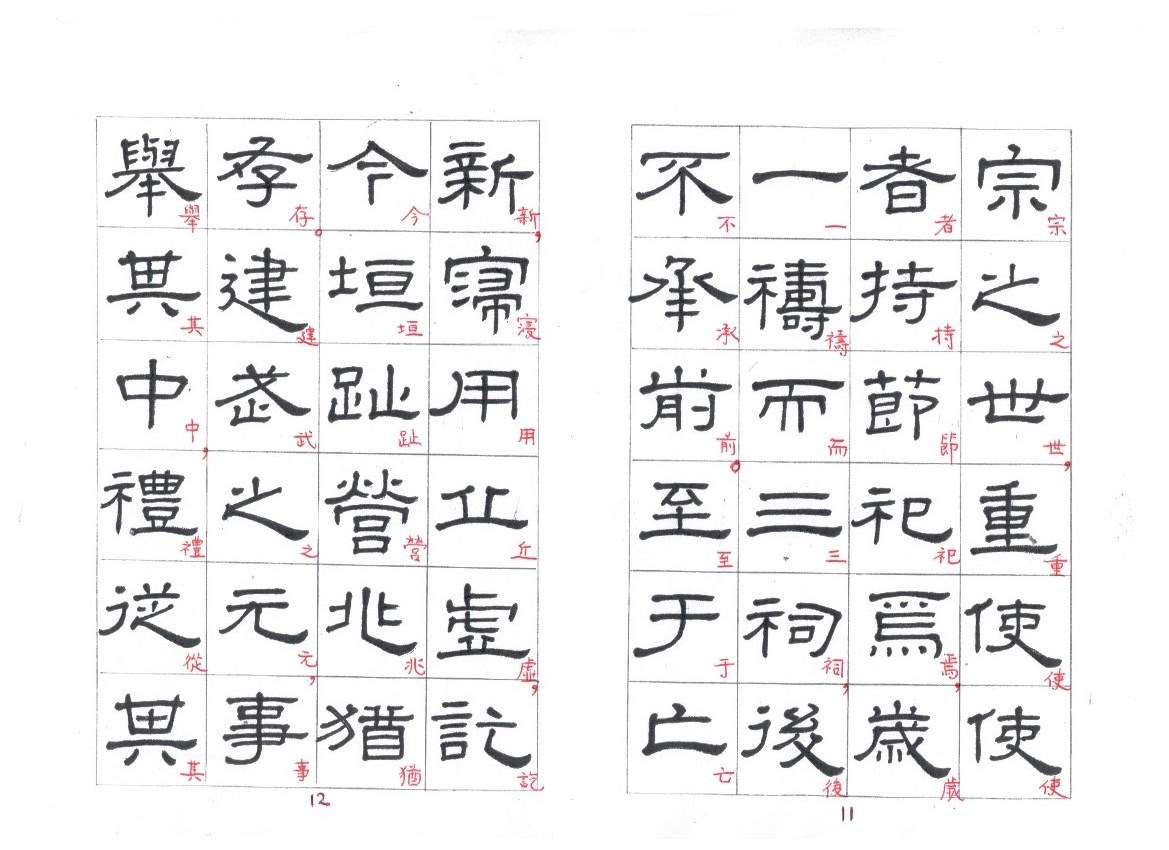 宗之世重使使
宗之世，重使使
者持節祀焉歲
者持節祀焉，歲
一禱而三祠後
一禱而三祠，後
不承前至于亡
不承前。至于亡
11
新寖用丘虛訖
新，寖用丘虛，訖
今垣趾營兆猶
今垣趾營兆猶
存建武之元事
存。建武之元，事
舉其中禮從其
舉其中，禮從其
12